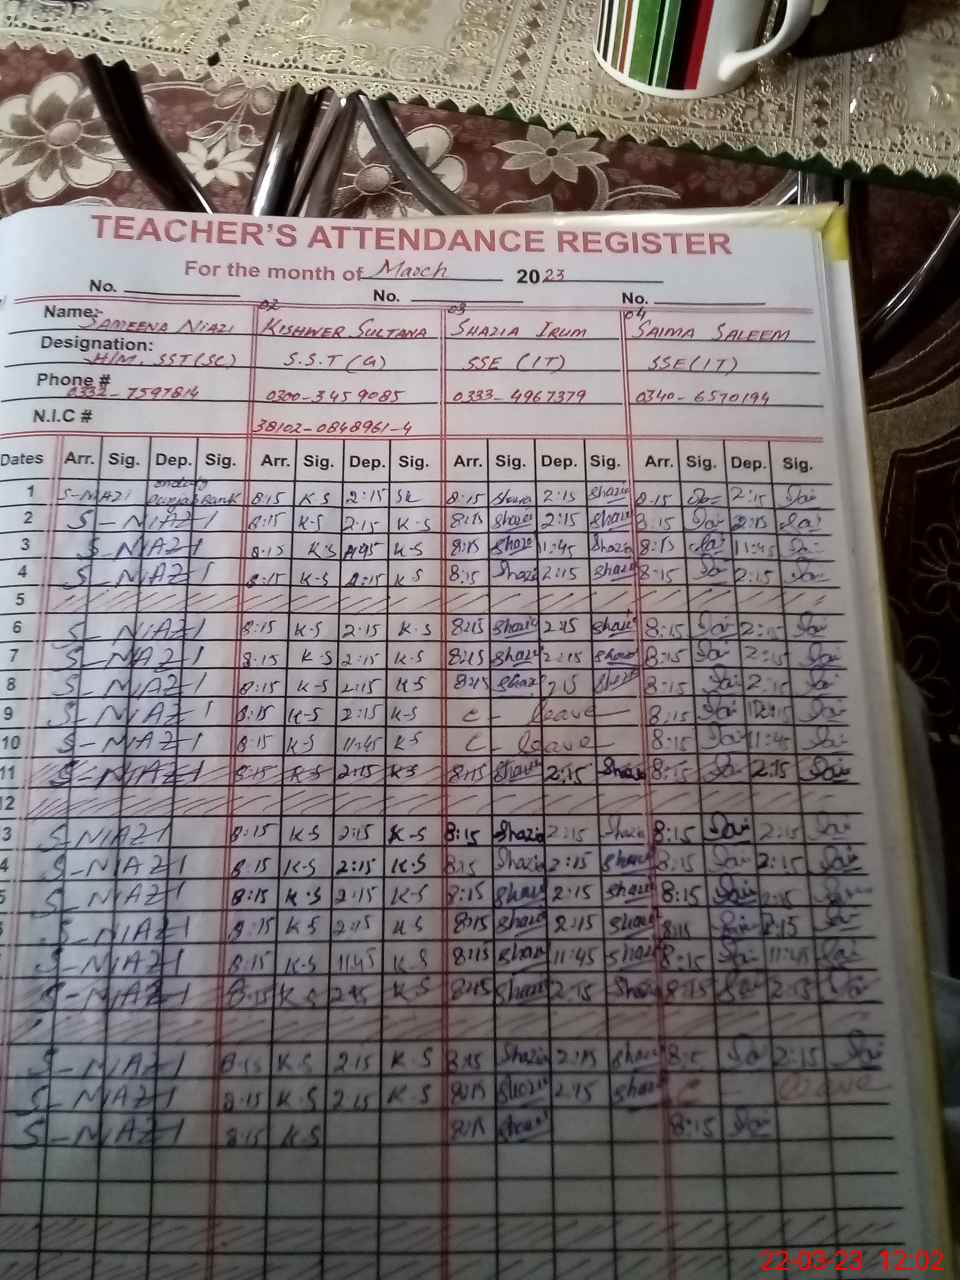 TEACHER'S ATTENDANCE REGISTER
For the month of March 2023
No. No. No.
02 03 04
Name:- SAMEENA NIAZI KISHWER SULTANA SHAZIA IRUM SAIMA SALEEM
Designation: H/M. SST(SC) S.S.T (G) SSE (IT) SSE(IT)
Phone # 0332-7597814 0300-3459085 0333-4967379 0340-6570194
N.I.C # 38102-0848961-4
Dates Arr. Sig. Dep. Sig. Arr. Sig. Dep. Sig. Arr. Sig. Dep. Sig. Arr. Sig. Dep. Sig.
1 S-NIAZI Bank 8:15 K S 2:15 8:15 Shazia 2:15 Shazia 8:15 Sai 2:15 Sai
2 S-NIAZI 8:15 K-S 2:15 K-S 8:15 Shazia 2:15 Shazia 8:15 Sai 2:15 Sai
3 S-NIAZI 8:15 K-S 11:45 K-S 8:15 Shazia 11:45 Shazia 8:15 Sai 11:45 Sai
4 S-NIAZI 8:15 K-S 2:15 K S 8:15 Shazia 2:15 Shazia 8:15 Sai 2:15 Sai
5
6 S-NIAZI 8:15 K-S 2:15 K-S 8:15 Shazia 2:15 Shazia 8:15 Sai 2:15 Sai
7 S-NIAZI 8:15 K-S 2:15 K-S 8:15 Shazia 2:15 Shazia 8:15 Sai 2:15 Sai
8 S-NIAZI 8:15 K-S 2:15 K-S 8:15 Shazia 2:15 Shazia 8:15 Sai 2:15 Sai
9 S-NIAZI 8:15 K-S 2:15 K-S C- leave 8:15 Sai Sai
10 S-NIAZI 8:15 K-S 11:45 K S C- leave 8:15 Sai 11:45 Sai
11 S-NIAZI 8:15 K S 2:15 K S 8:15 Shazia 2:15 Shazia 8:15 Sai 2:15 Sai
12
3 S-NIAZI 8:15 K-S 2:15 K-S 8:15 Shazia 2:15 Shazia 8:15 Sai 2:15 Sai
4 S-NIAZI 8:15 K-S 2:15 K-S 8:15 Shazia 2:15 Shazia 8:15 Sai 2:15 Sai
5 S-NIAZI 8:15 K-S 2:15 K-S 8:15 Shazia 2:15 Shazia 8:15 Sai 2:15
S-NIAZI 8:15 K S 2:15 K S 8:15 Shazia 2:15 Shazia 8:15 Sai 2:15 Sai
S-NIAZI 8:15 K-S 11:45 K S 8:15 Shazia 11:45 Shazia 8:15 Sai 11:45 Sai
S-NIAZI 8:15 K S 2:15 K S 8:15 Shazia 2:15 Shazia 8:15 Sai 2:15 Sai
S-NIAZI 8:15 K-S 2:15 K-S 8:15 Shazia 2:15 Shazia Sai 2:15 Sai
S-NIAZI 8:15 K-S 2:15 K-S 8:15 Shazia 2:15 Shazia C - leave
S-NIAZI 8:15 K-S 8:15 Shazia 8:15 Sai
22-03-23 12:02